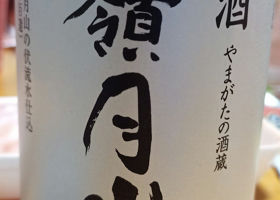 酒
やまがたの酒蔵
嶺月山
月山の伏流水仕込
百選